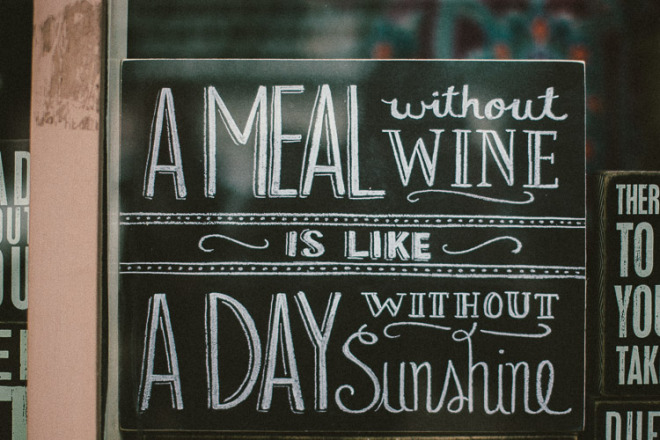 A MEAL without
WINE
IS LIKE
A DAY WITHOUT
Sunshine
THER
TO
YOU
TAK
DUE
A D
OUT
OU